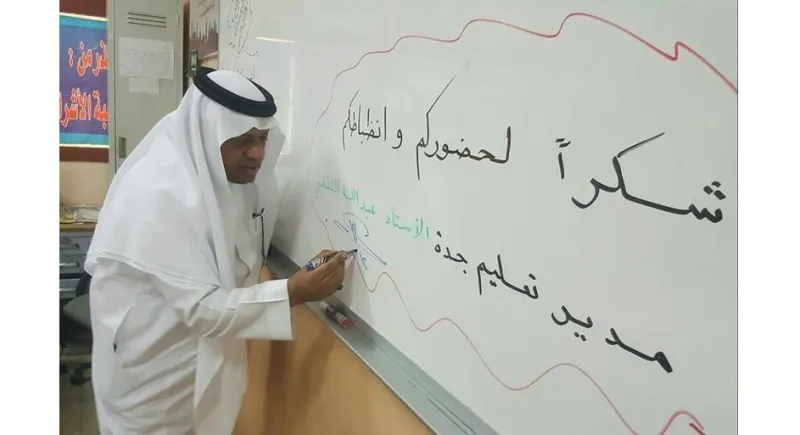 شكراً لحضوركم و انضباطكم
مدير تعليم جدة الأستاذ عبدالله الثقفي